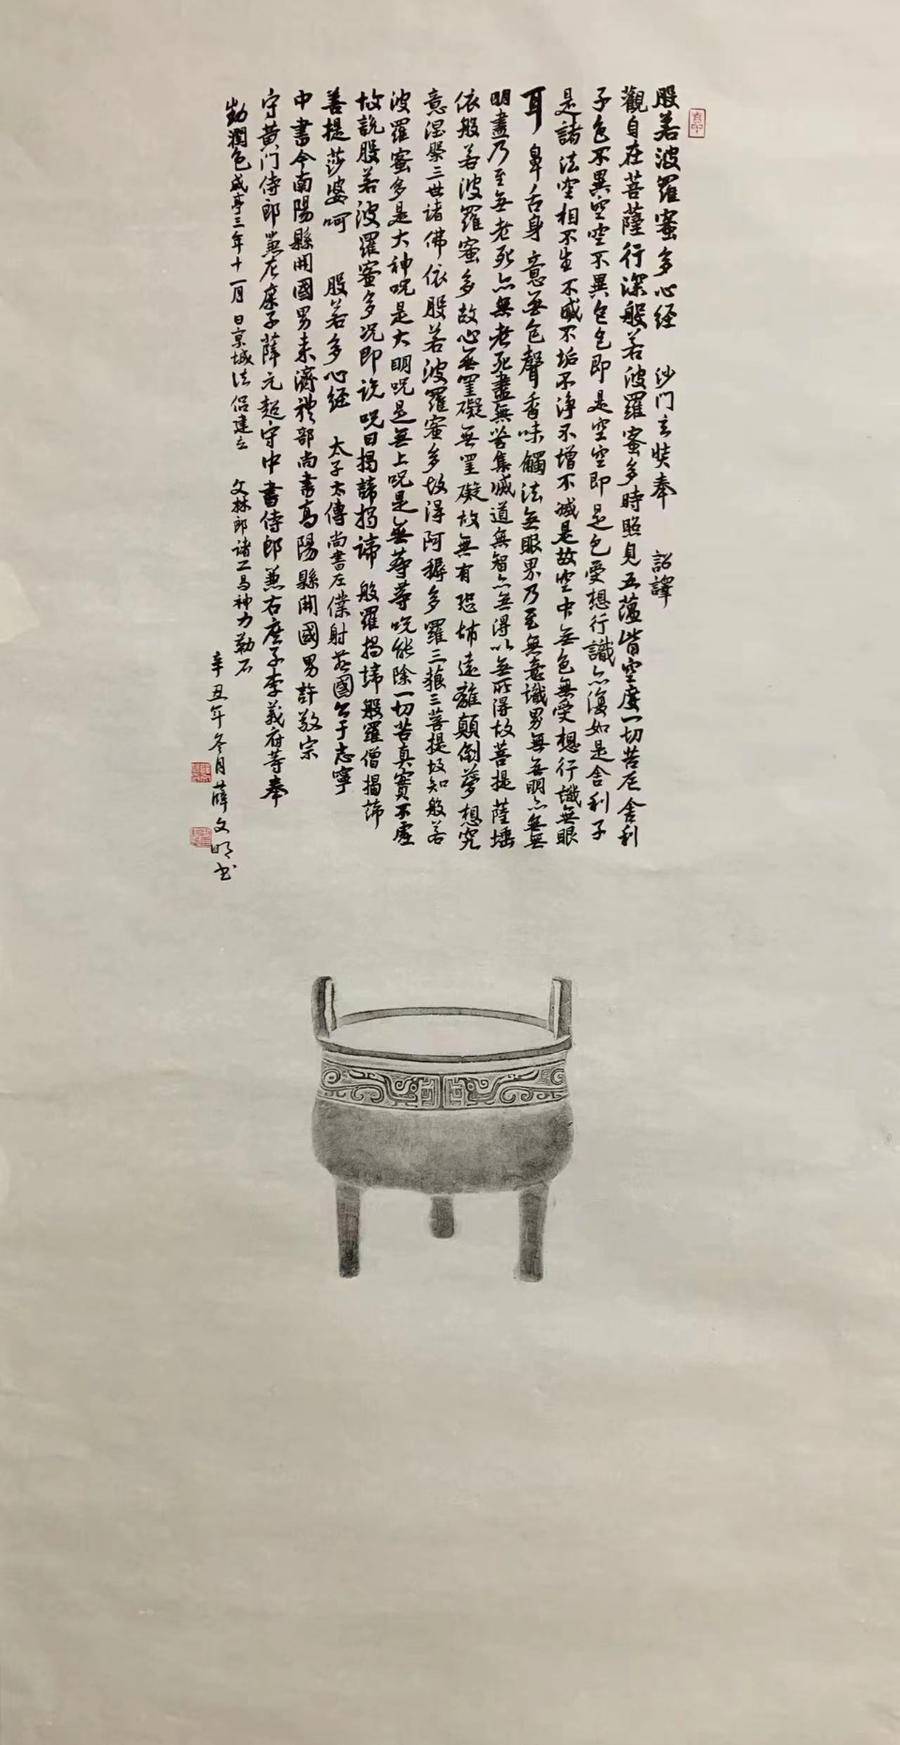 般若波羅蜜多心经 沙门玄奘奉 詔譯
觀自在菩薩行深般若波羅蜜多時照見五蕴皆空度一切苦厄舍利
子色不異空空不異色色即是空空即是色受想行識亦復如是舍利子
是諸法空相不生不滅不垢不淨不增不減是故空中無色無受想行識無眼
耳鼻舌身意無色聲香味觸法無眼界乃至無意識界無無明亦無無
明盡乃至無老死亦無老死盡無苦集滅道無智亦無得以無所得故菩提薩埵
依般若波羅蜜多故心無罣礙無罣礙故無有恐怖遠離顛倒夢想究
竟涅槃三世諸佛依般若波羅蜜多故得阿耨多羅三藐三菩提故知般若
波羅蜜多是大神呪是大明呪是無上呪是無等等呪能除一切苦真實不虛
故說般若波羅蜜多呪即说呪曰揭諦揭諦 般羅揭諦般羅僧揭諦
菩提莎婆呵 般若多心經 太子太傅尚書左僕射燕國公于志寧
中書令南陽縣開國男来濟禮部尚書高陽縣開國男許敬宗
守黄门侍郎兼左庶子薛元超守中書侍郎兼右庶子李義府等奉
勑潤色咸亨三年十二月 日京城法侣建立 文林郎諸葛神力勒石
辛丑年冬月薛文明书